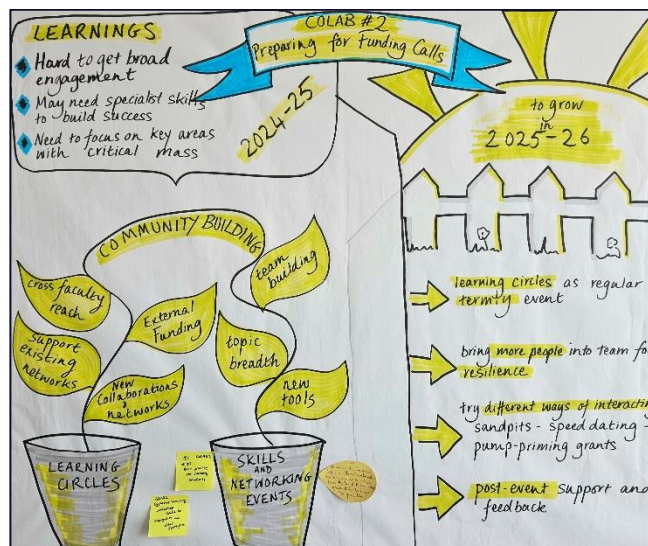 COLAB #2
Preparing for Funding Calls
LEARNINGS
Hard to get broad
engagement
May need specialist skills
to build success
Need to focus on key areas
with critical mass
2024-25
to grow
in
2025-26
COMMUNITY BUILDING
cross faculty
reach
External
Funding
Support
existing
networks
New
Collaborations &
networks
team
building
topic
breadth
new
tools
LEARNING
CIRCLES
SKILLS
AND
NETWORKING
EVENTS
learning circles as regular
termly event
bring more people into team fo
resilience
try different ways of interactin
sandpits - speed dating -
pump-priming grants
post-event support and
feedback